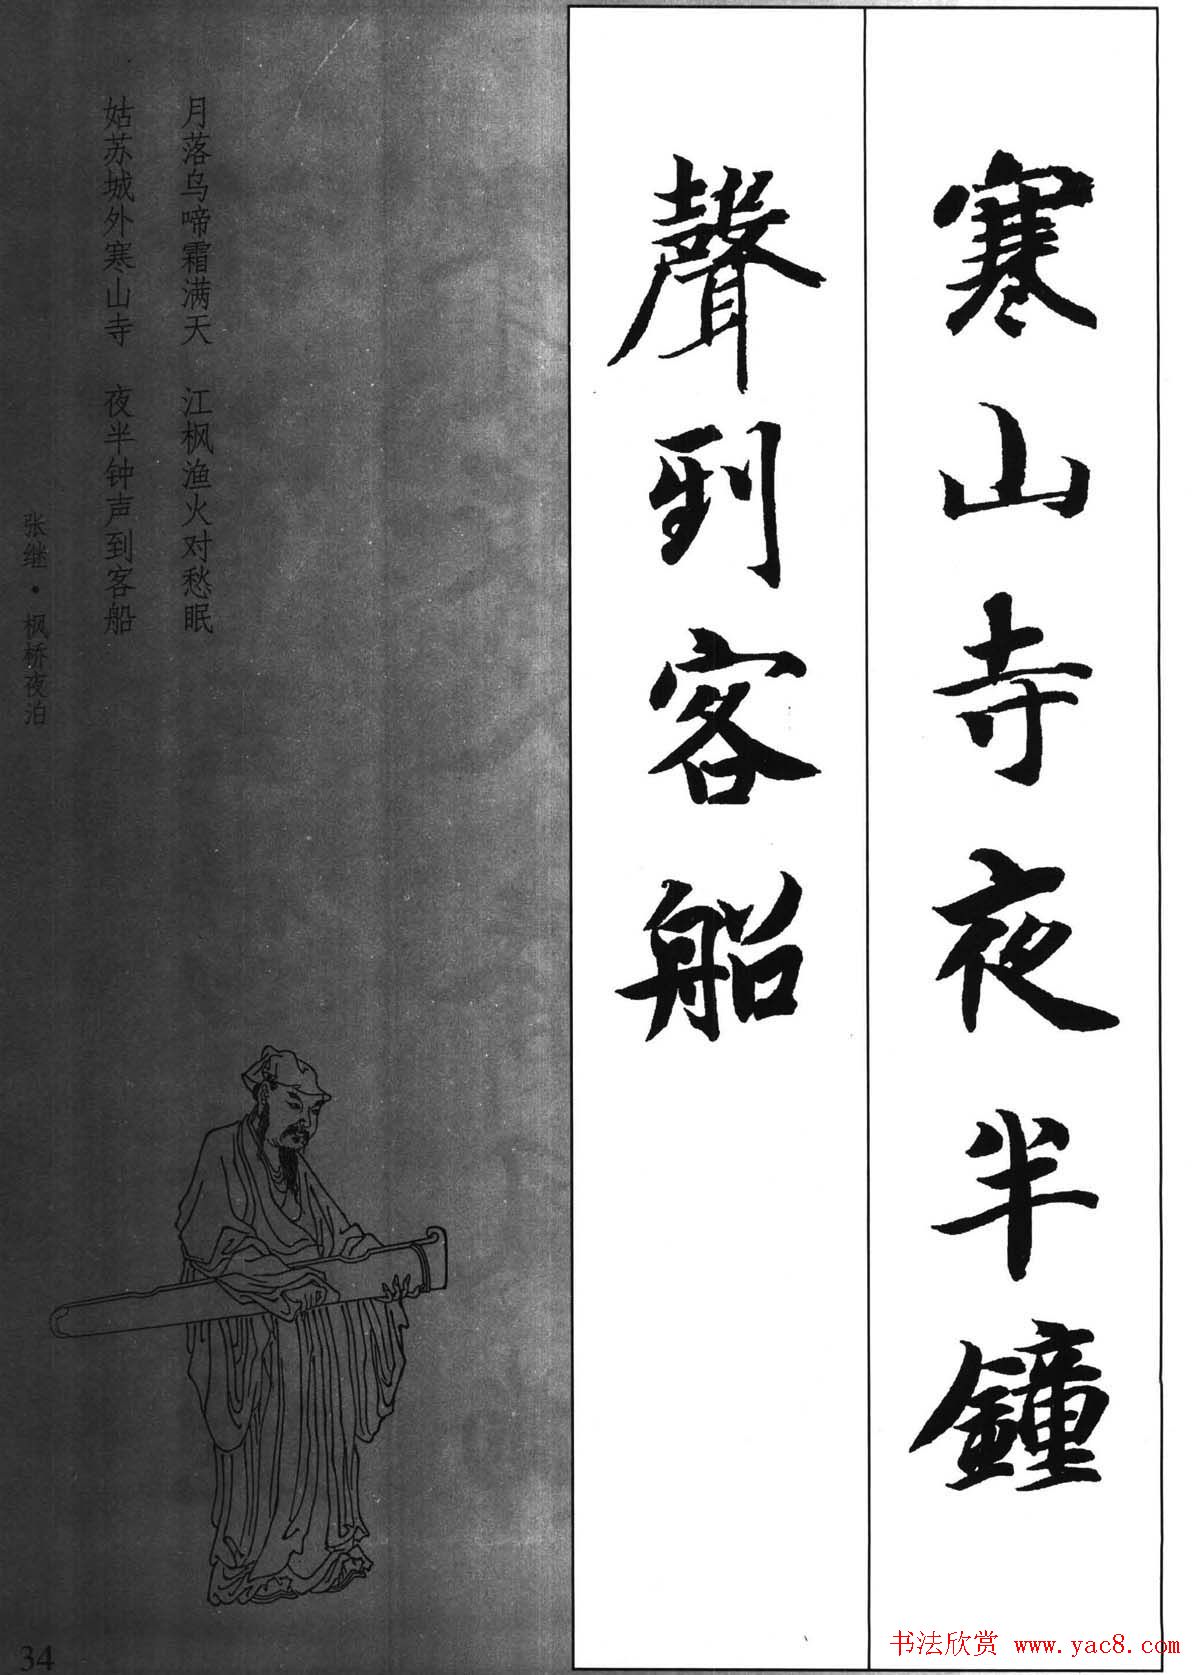 寒山寺夜半鐘
聲到客船
月落乌啼霜满天 江枫渔火对愁眠
姑苏城外寒山寺 夜半钟声到客船
张继·枫桥夜泊
34
书法欣赏 www.yac8.com